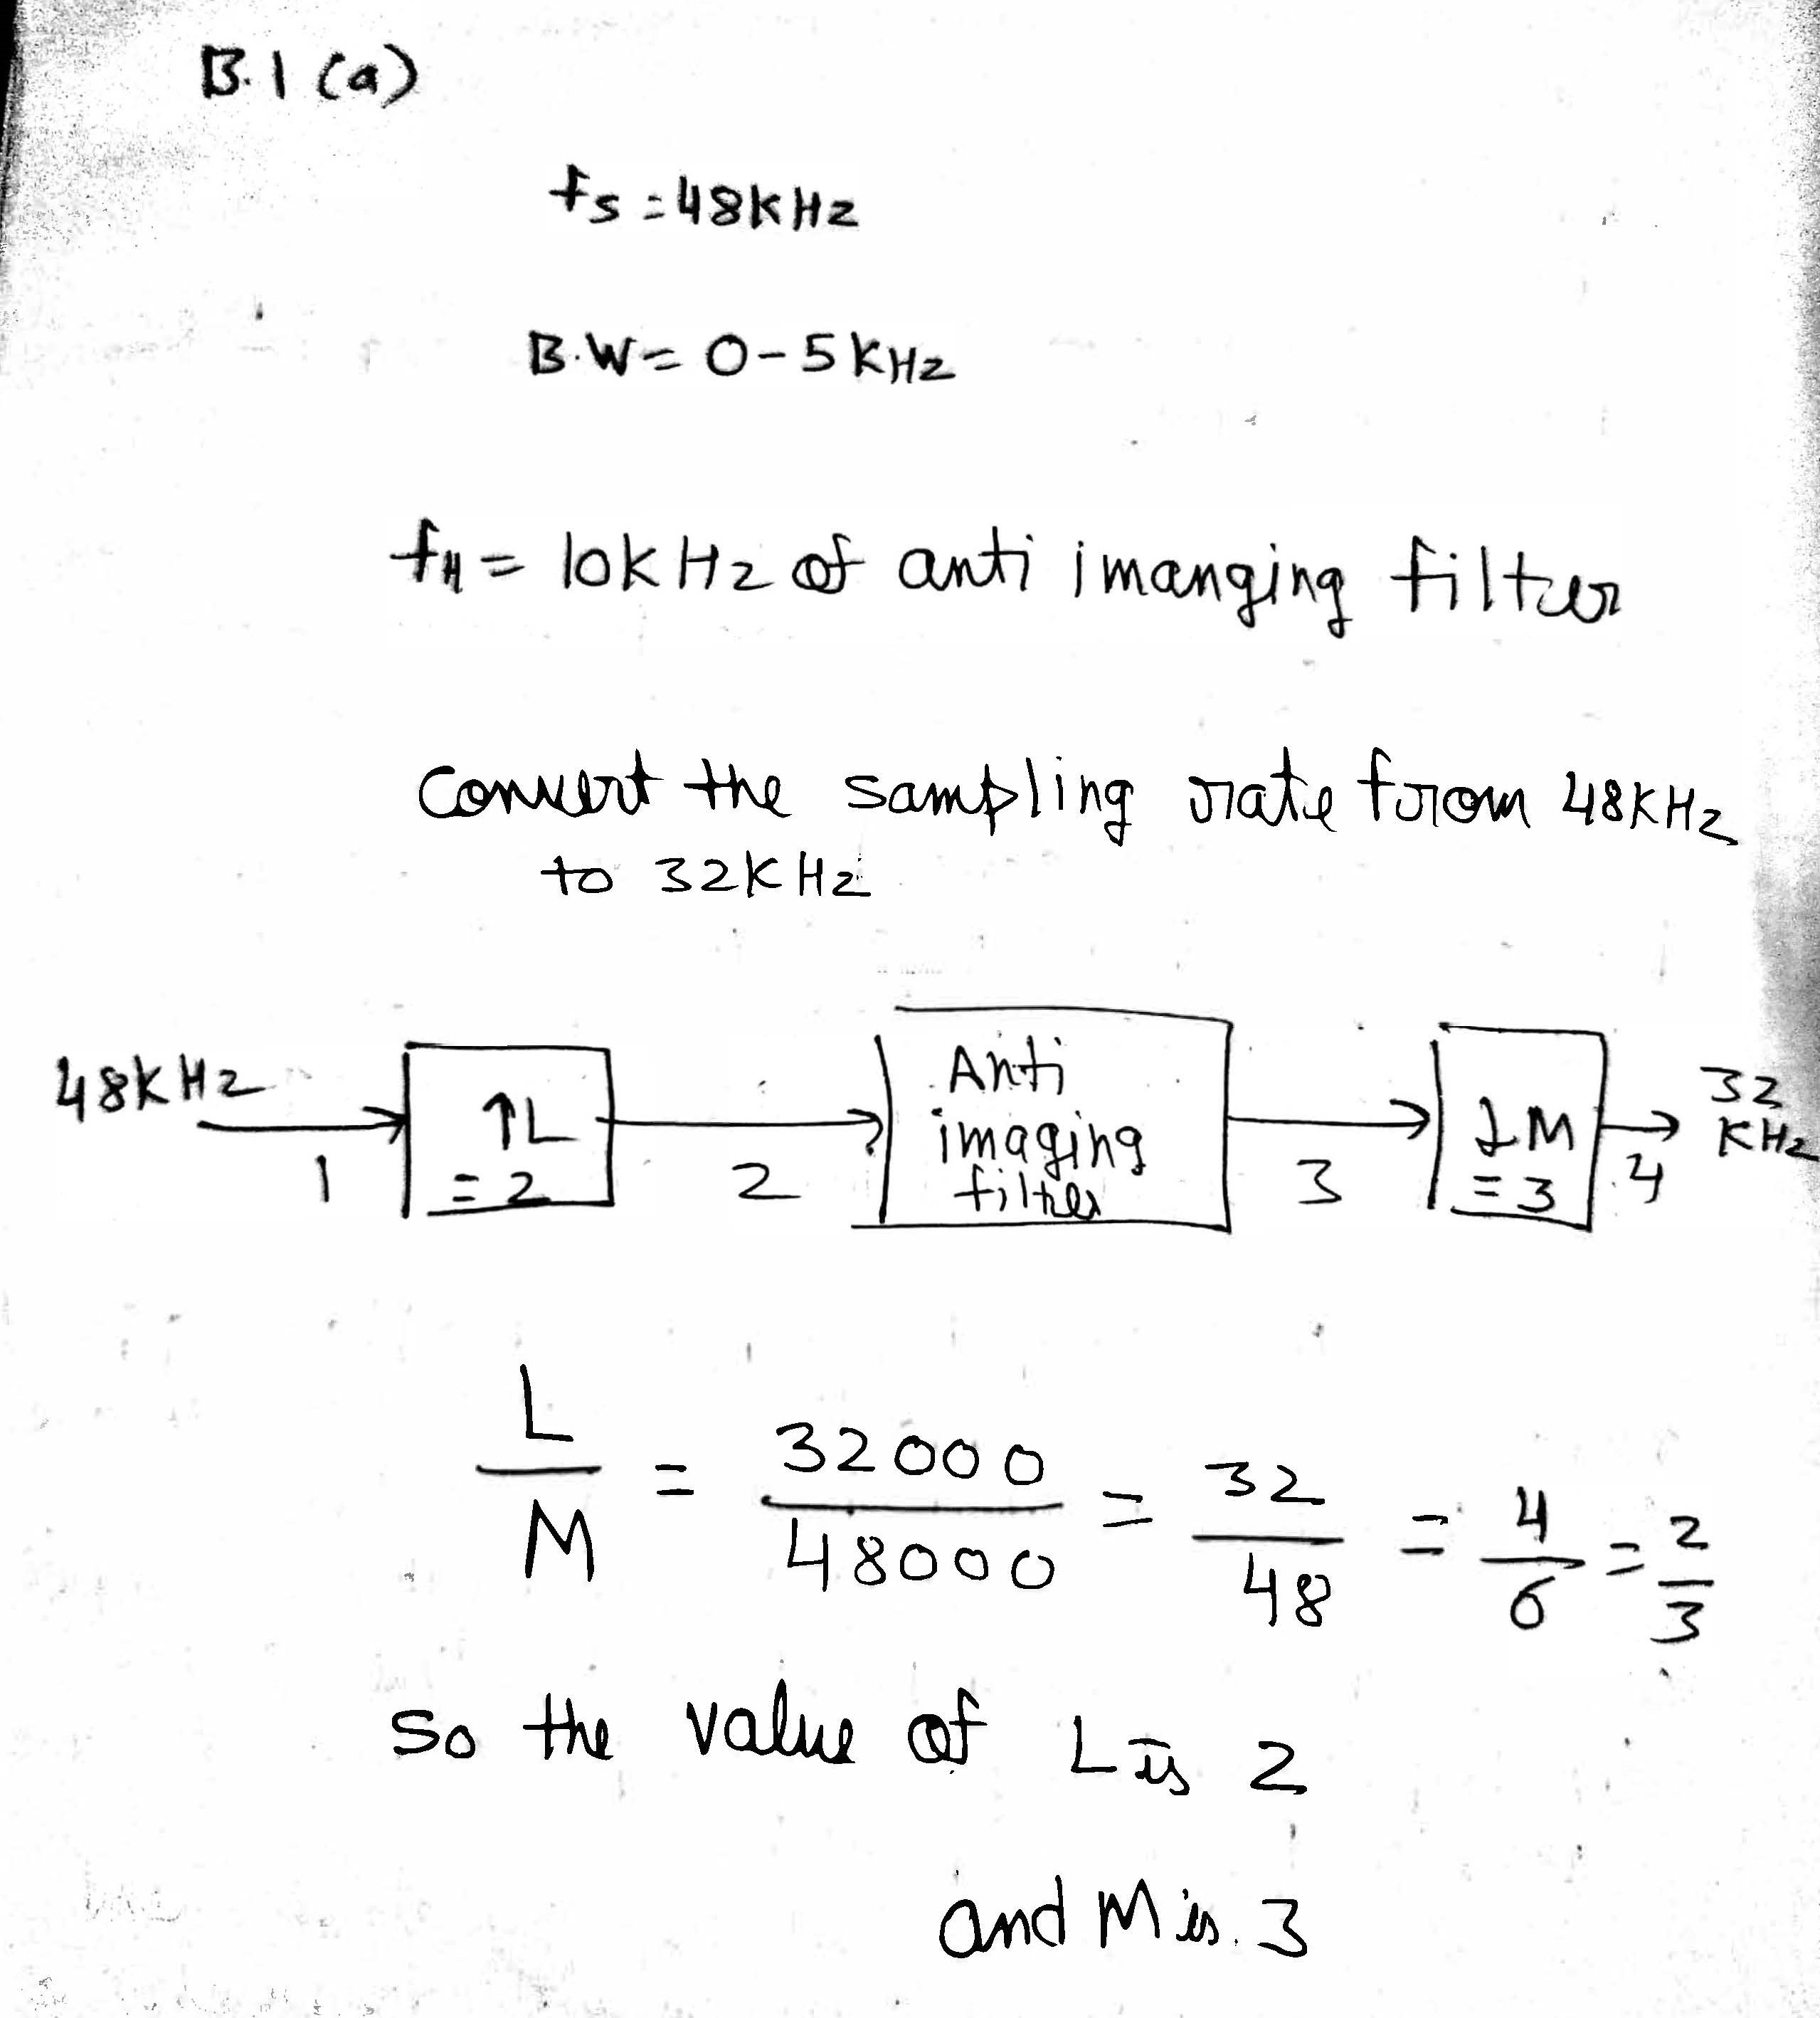 B.1 (a)
fs = 48KHz
B.W = 0-5 KHz
fH = 10KHz of anti imanging filter
Convert the sampling rate from 48KHz
to 32KHz
48KHz
1
↑L
= 2
2
Anti
imaging
filter
3
↓M
= 3
4
32
KHz
L/M = 32000/48000 = 32/48 = 4/6 = 2/3
So the value of L is 2
and M is 3